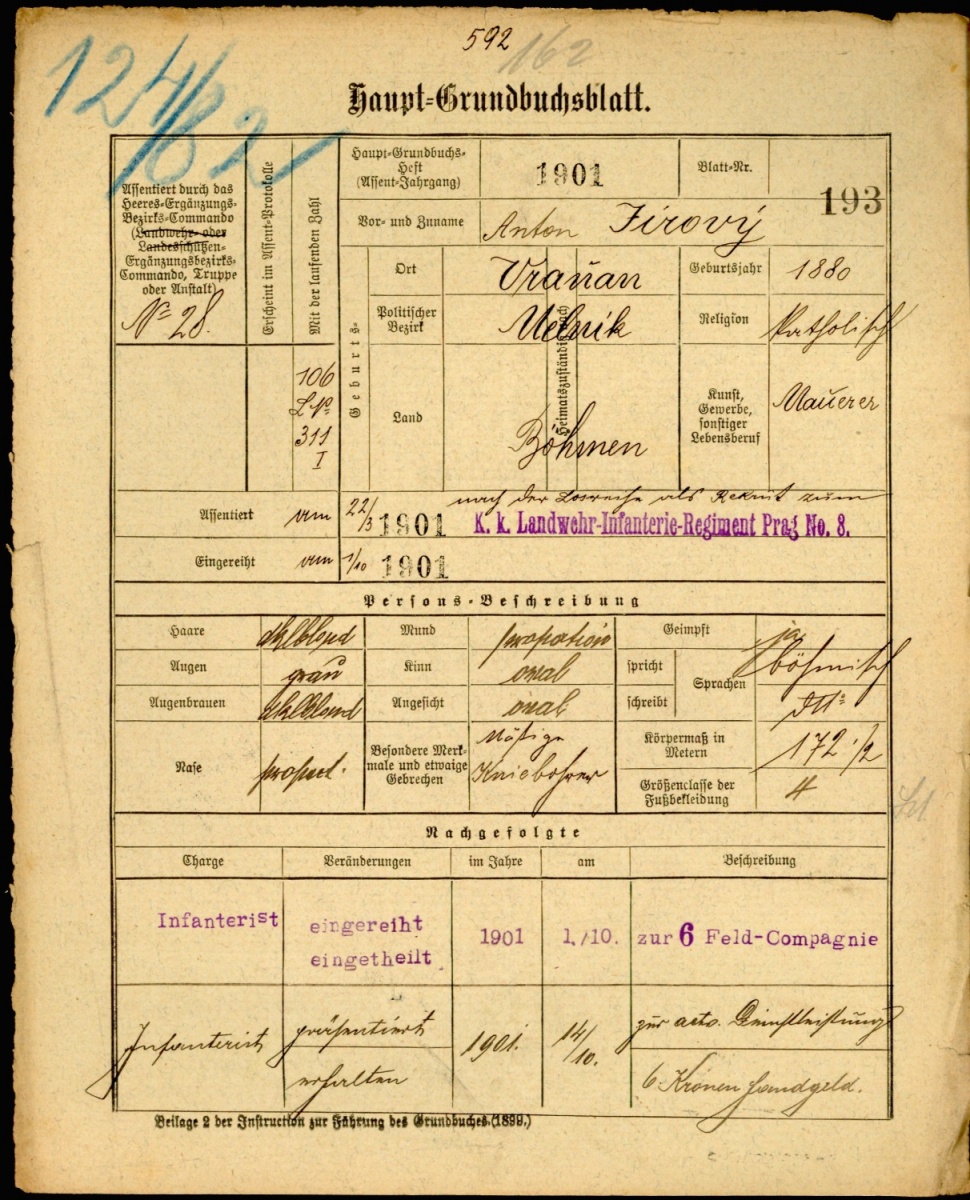 592
162
124/82
Haupt=Grundbuchsblatt.
Assentiert durch das
Heeres=Ergänzungs=
Bezirks=Commando
(Landwehr= oder
Landesschützen=
Ergänzungsbezirks=
Commando, Truppe
oder Anstalt)
No 28.
Erscheint im Assent=Protokolle
Mit der laufenden Zahl
106
311
I
Haupt=Grundbuchs=
Heft
(Assent=Jahrgang)
1901
Blatt=Nr.
193
Vor= und Zuname
Anton Jirový
Geburts=
Heimatszuständig nach
Ort
Vraňan
Geburtsjahr
1880
Politischer
Bezirk
Melnik
Religion
Katholisch
Land
Böhmen
Kunst,
Gewerbe,
sonstiger
Lebensberuf
Mauerer
Assentiert am 22/3 1901
nach der Losreihe als Rekrut zum
K. k. Landwehr-Infanterie-Regiment Prag No. 8.
Eingereiht am 1/10 1901
Persons=Beschreibung
Haare dklblond
Mund proportion
Geimpft ja
Augen grau
Kinn oval
spricht
Sprachen
böhmisch
Augenbrauen dklblond
Angesicht oval
schreibt
Nase proport.
Besondere Merk=
male und etwaige
Gebrechen
Mäßige
Kniebohrer
Körpermaß in
Metern
172 1/2
Größenclasse der
Fußbekleidung
4
Nachgefolgte
Charge Veränderungen im Jahre am Beschreibung
Infanterist eingereiht
eingetheilt
1901 1./10. zur 6 Feld-Compagnie
Infanterist präsentiert 1901. 14/10. zur activ. Dienstleistung
erhalten 6 Kronen Handgeld.
Beilage 2 der Instruction zur Führung des Grundbuches.(1899.)